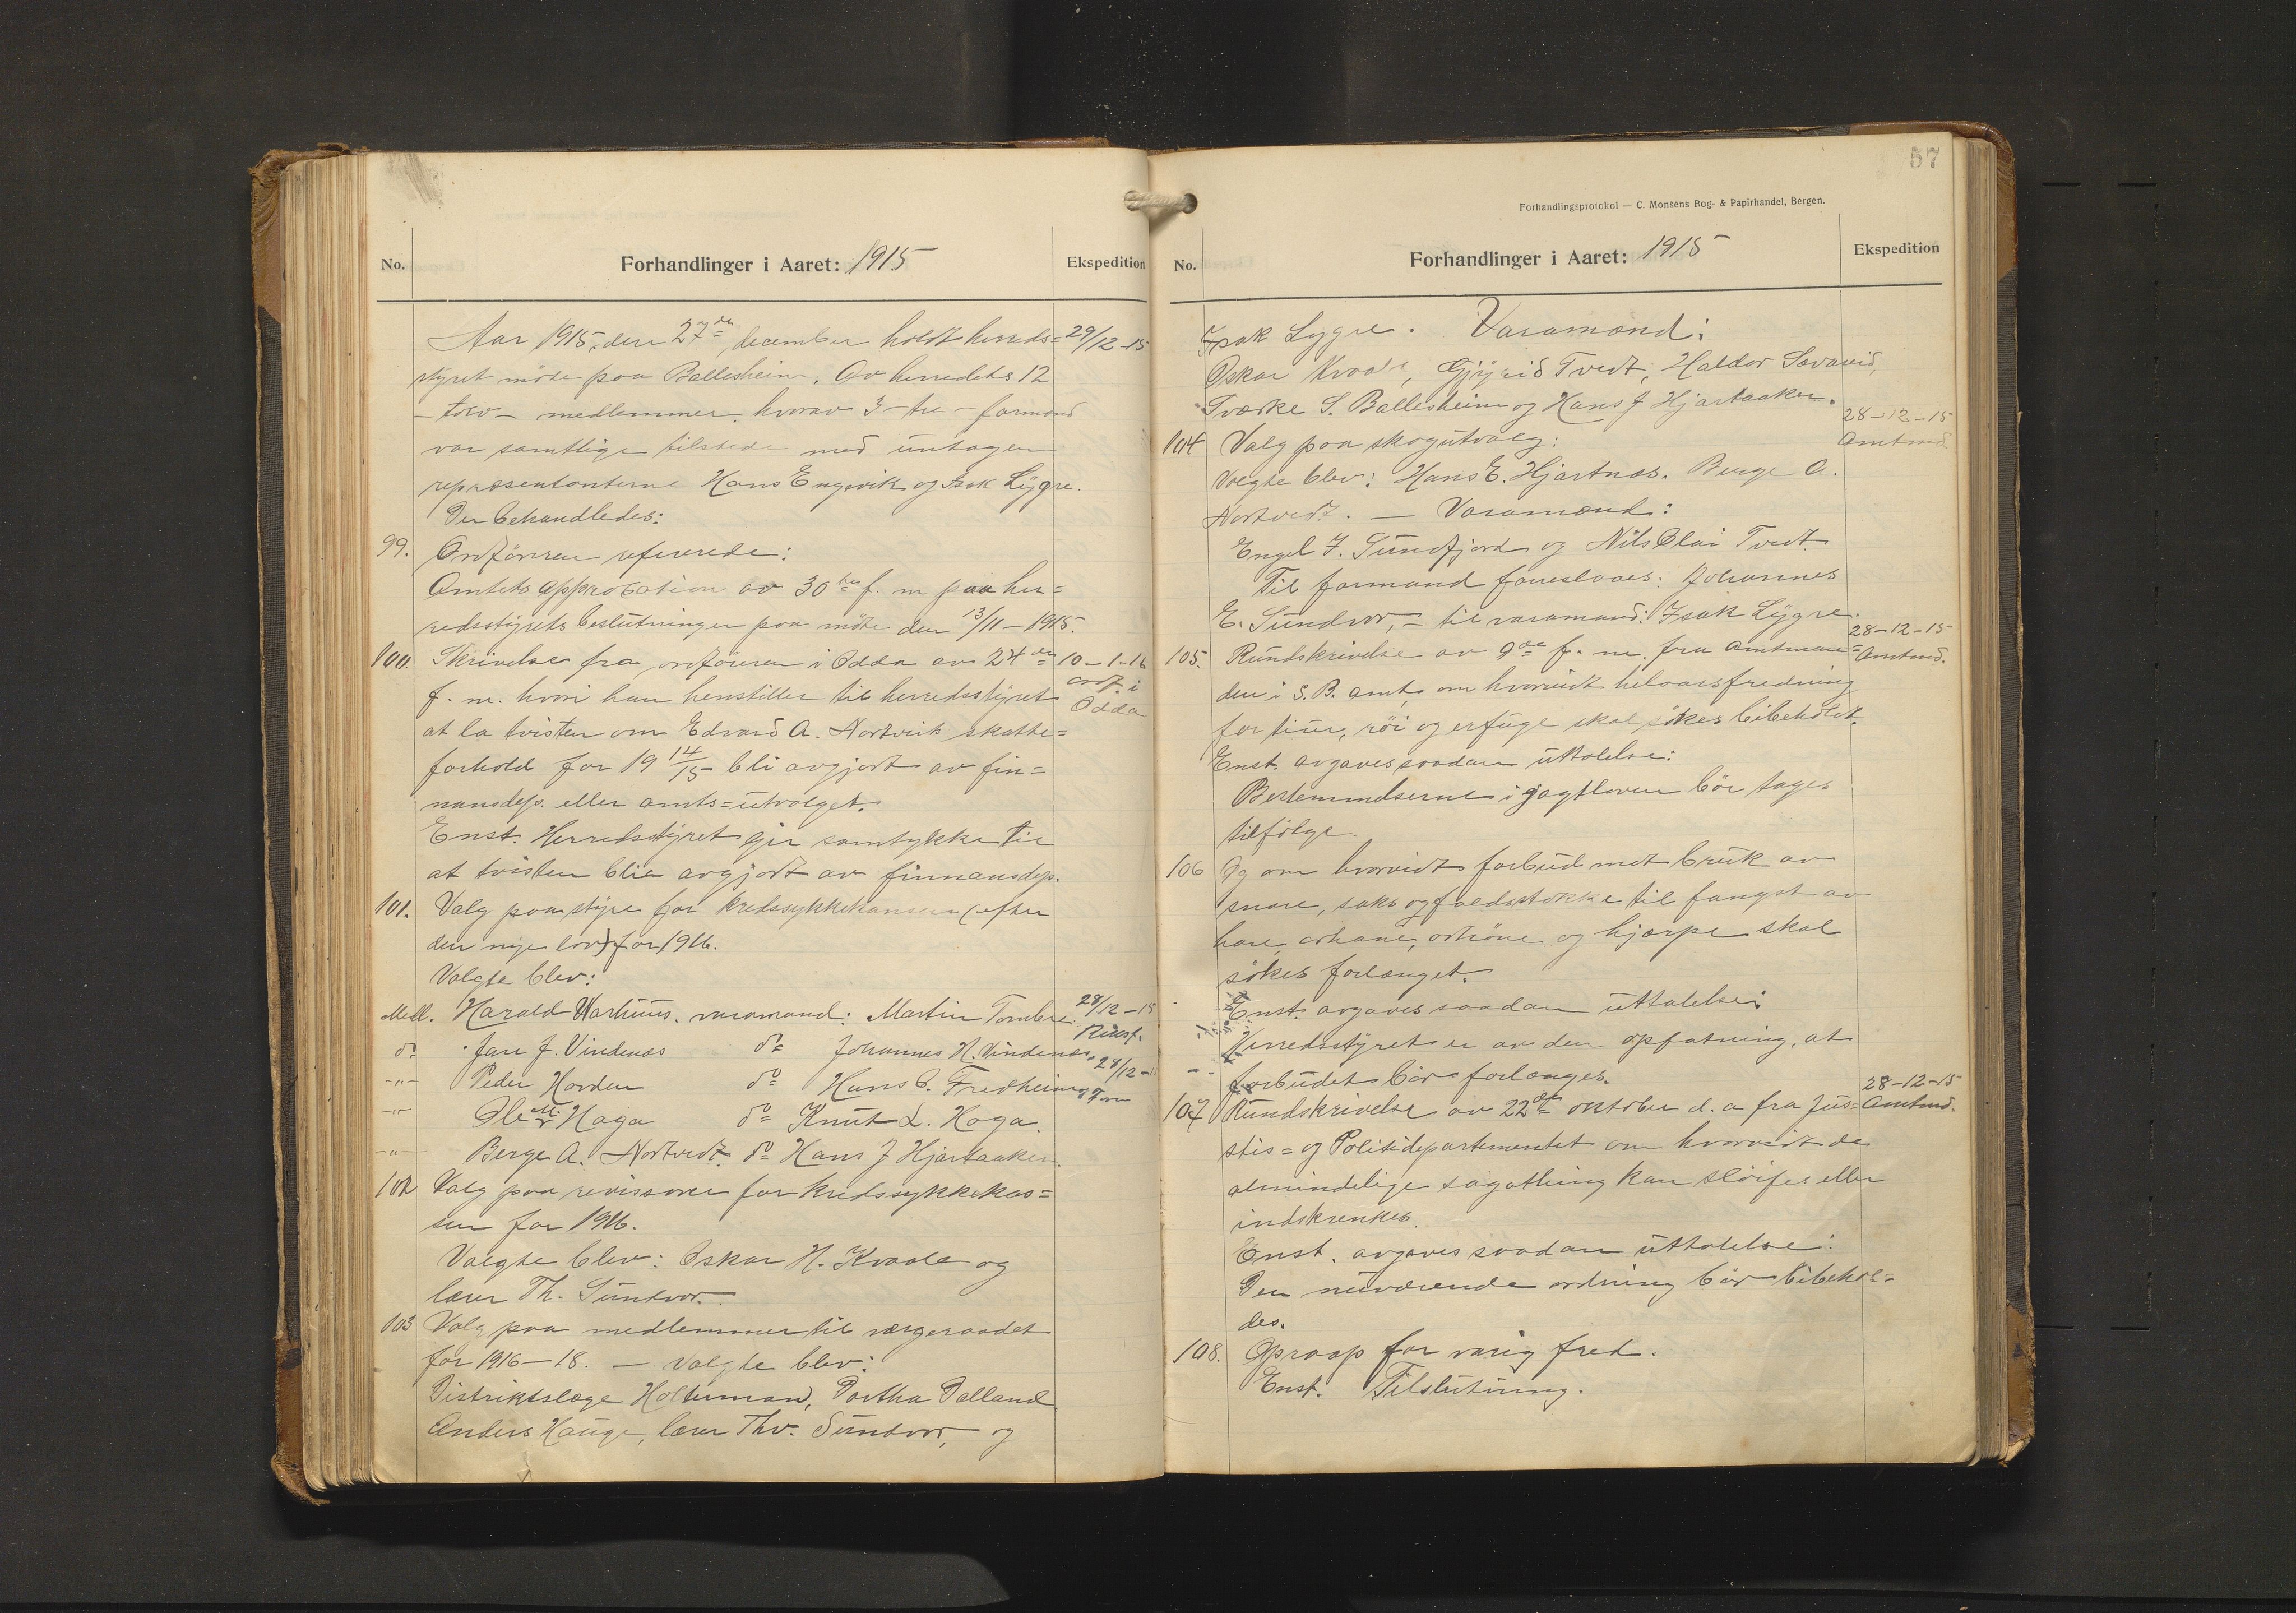 No.
Forhandlinger i Aaret: 1915
Ekspedition
Aar 1915, den 27de december holdt hereds=
29/12-15
styret möte paa Ballesheim. Av herredets 12
-tolv- medlemmer, hvorav 3-tre-formænd
var samtlige tilstede med undtagen
repræsentanterne Hans Engevik og Isak Lygre.
Der behandledes:
99. Ordföreren refererede:
Amtets approbation av 30te f. m paa her=
redsstyrets beslutninger paa möte den 13/11-1915.
100. Skrivelse fra ordföreren i Odda av 24de
10-1-16
ordf. i
Odda
f. m. hvori han henstiller til herredsstyret
at la tvisten om Edvard A. Nortveits skatte=
forhold for 19 14/15 bli avgjort av fin=
nansdep. eller amts=utvalget.
Enst. Herredsstyret gir samtykke til
at tvisten blir avgjort av finnansdep.
101. Valg paa styre for kredssykkekassen (efter
den nye lov) for 1916.
Valgte blev:
Medl. Harald Warhuus. varamand: Martin Tombre.
28/12-15
Ridesf.
do Jan J. Vindenæs do Johannes H. Vindenæs
-"- Peder Horden do Hans B. Fredheim
28/12-1
-"- Haga do Knut L. Haga.
-"- Berge A. Nortvedt. do Hans J Hjartaaker.
102 Valg paa revisorer for kredssykkekas=
sen for 1916.
Valgte blev: Oskar H. Kvaale og
lærer Th. Sundvor.
103 Valg paa medlemmer til værgeraadet
for 1916-18. - Valgte blev:
Distriktslæge Holterman, Dorthea Dalland,
Anders Hauge, lærer Thv. Sundvor, og
57
Forhandlingsprotokol — C. Monsens Bog- & Papirhandel, Bergen.
No.
Forhandlinger i Aaret: 1915
Ekspedition
Isak Lygre. Varamænd:
Oskar Kvaale, Gjyrid Tvedt, Haldor Sævareid,
Sværke S. Ballesheim og Hans J Hjartaaker.
28-12-15
Amtmd
104 Valg paa skogutvalg:
Valgte blev: Hans E. Hjartnæs. Berge A.
Nortvedt. - Varamænd:
Engel J. Sundfjord og Nils Olai Tvedt.
Til formand foreslaaes: Johannes
E. Sundvor, - til varamand: Isak Lygre.
28-12-15
Amtmd.
105. Rundskrivelse av 9de f. m. fra amtman=
den i S. B. amt, om hvorvidt helaarsfredning
for tiur, röi og orfugl skal sökes bibeholdt.
Enst. avgaves saadan uttalelse:
Bestemmelserne i jagtloven bör tages
tilfölge.
106 Og om hvorvidt forbud mot bruk av
snare, saks og faldstokke til fangst av
hare, orhane, orhöne og hjerpe skal
sökes forlænget.
Enst. avgaves saadan uttalelse:
Herredsstyret er av den opfatning, at
forbudet bör forlænges.
28-12-15
Amtmd.
107 Rundskrivelse av 22de oktober d. a fra Jus=
stis= og Politidepartementet om hvorvidt de
almindelige sagatting kan slöifes eller
indskrenkes.
Enst. avgaves saadan uttalelse:
Den nuværende ordning bör bibehol=
des.
108. Opraap for varig fred.
Enst. Tilslutning.